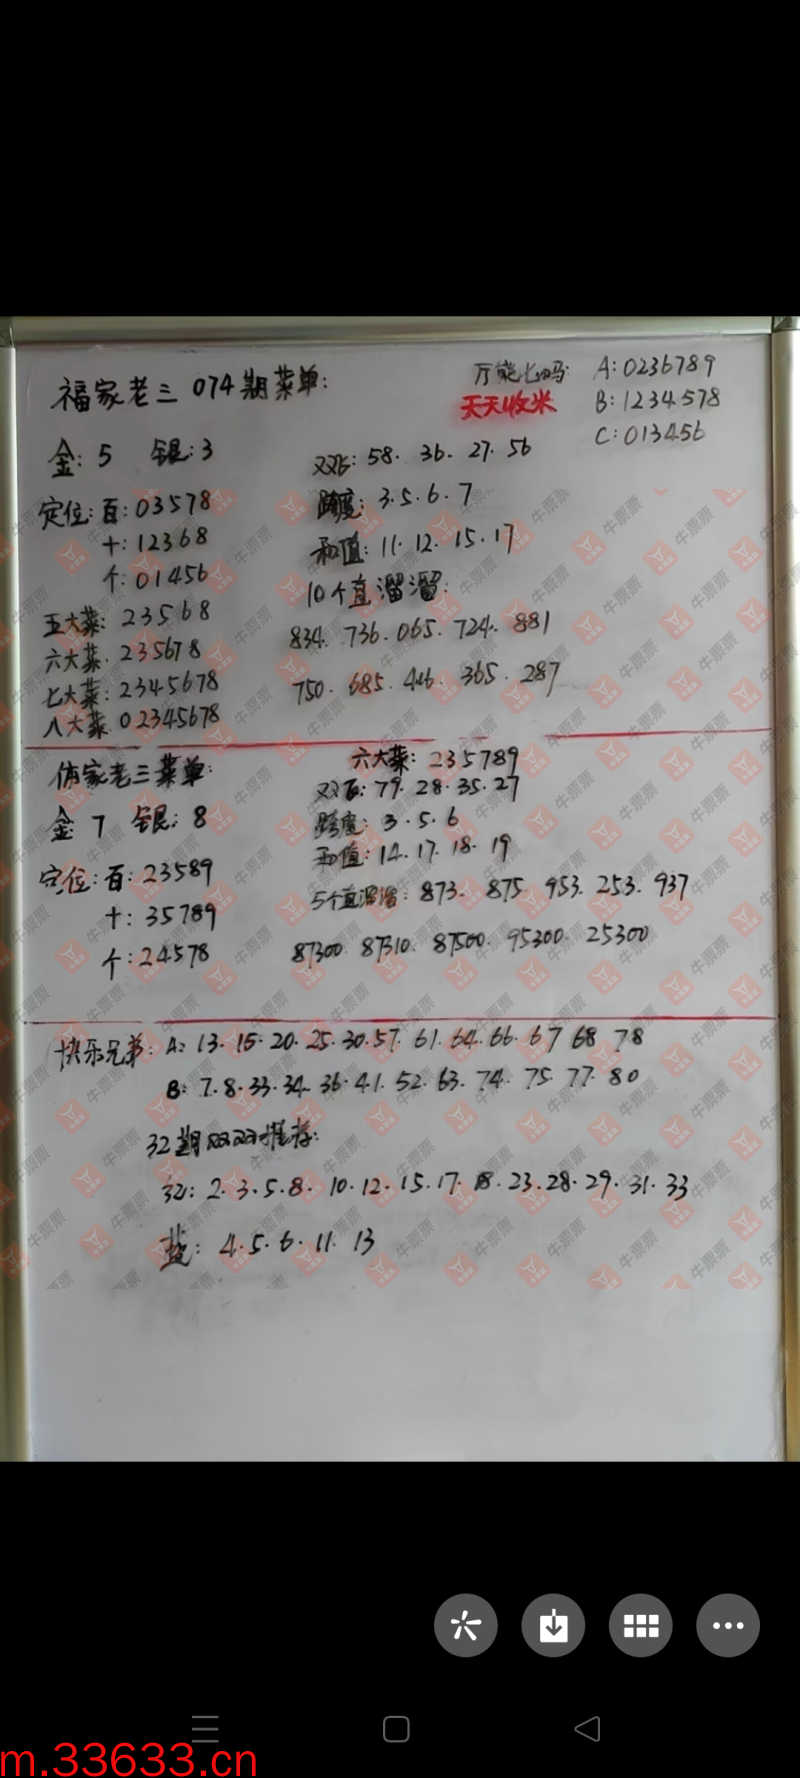 福家老三 074期菜单:
万能七码: A:0236789
天天收米 B:1234578
C:013456
金: 5 银:3
双飞: 58. 36. 27. 56
定位:百:03578
跨度: 3.5.6.7
十:12368
和值: 11. 12. 15. 17
个:01456
10个直溜溜:
五大菜: 23568
834. 736. 065. 724. 881
六大菜. 235678
七大菜: 2345678
750. 685. 446. 365. 287
八大菜. 02345678
体家老三菜单:
六大菜: 235789
双飞: 79. 28. 35. 27
金: 7 银: 8
跨度: 3.5.6
和值: 14. 17. 18. 19
定位:百:23589
5个直溜溜: 873. 875 953. 253. 937
十: 35789
个:24578
87300. 87310. 87500. 95300. 25300
快乐兄弟: A: 13. 15. 20. 25. 30. 57. 61. 64. 66. 67 68 78
B: 7. 8. 33. 34. 36. 41. 52. 63. 74. 75. 77. 80
32期双双推荐:
红: 2. 3. 5. 8. 10. 12. 15. 17. 18. 23. 28. 29. 31. 33
蓝: 4. 5. 6. 11. 13
牛票票
m.33633.cn